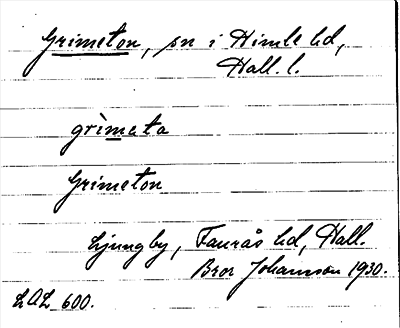 Grimeton, sn i Himle hd,
Hall. l.
grìmeta
Grimeton
Ljungby, Faurås hd, Hall.
Bror Johansson 1930.
LAL 600.